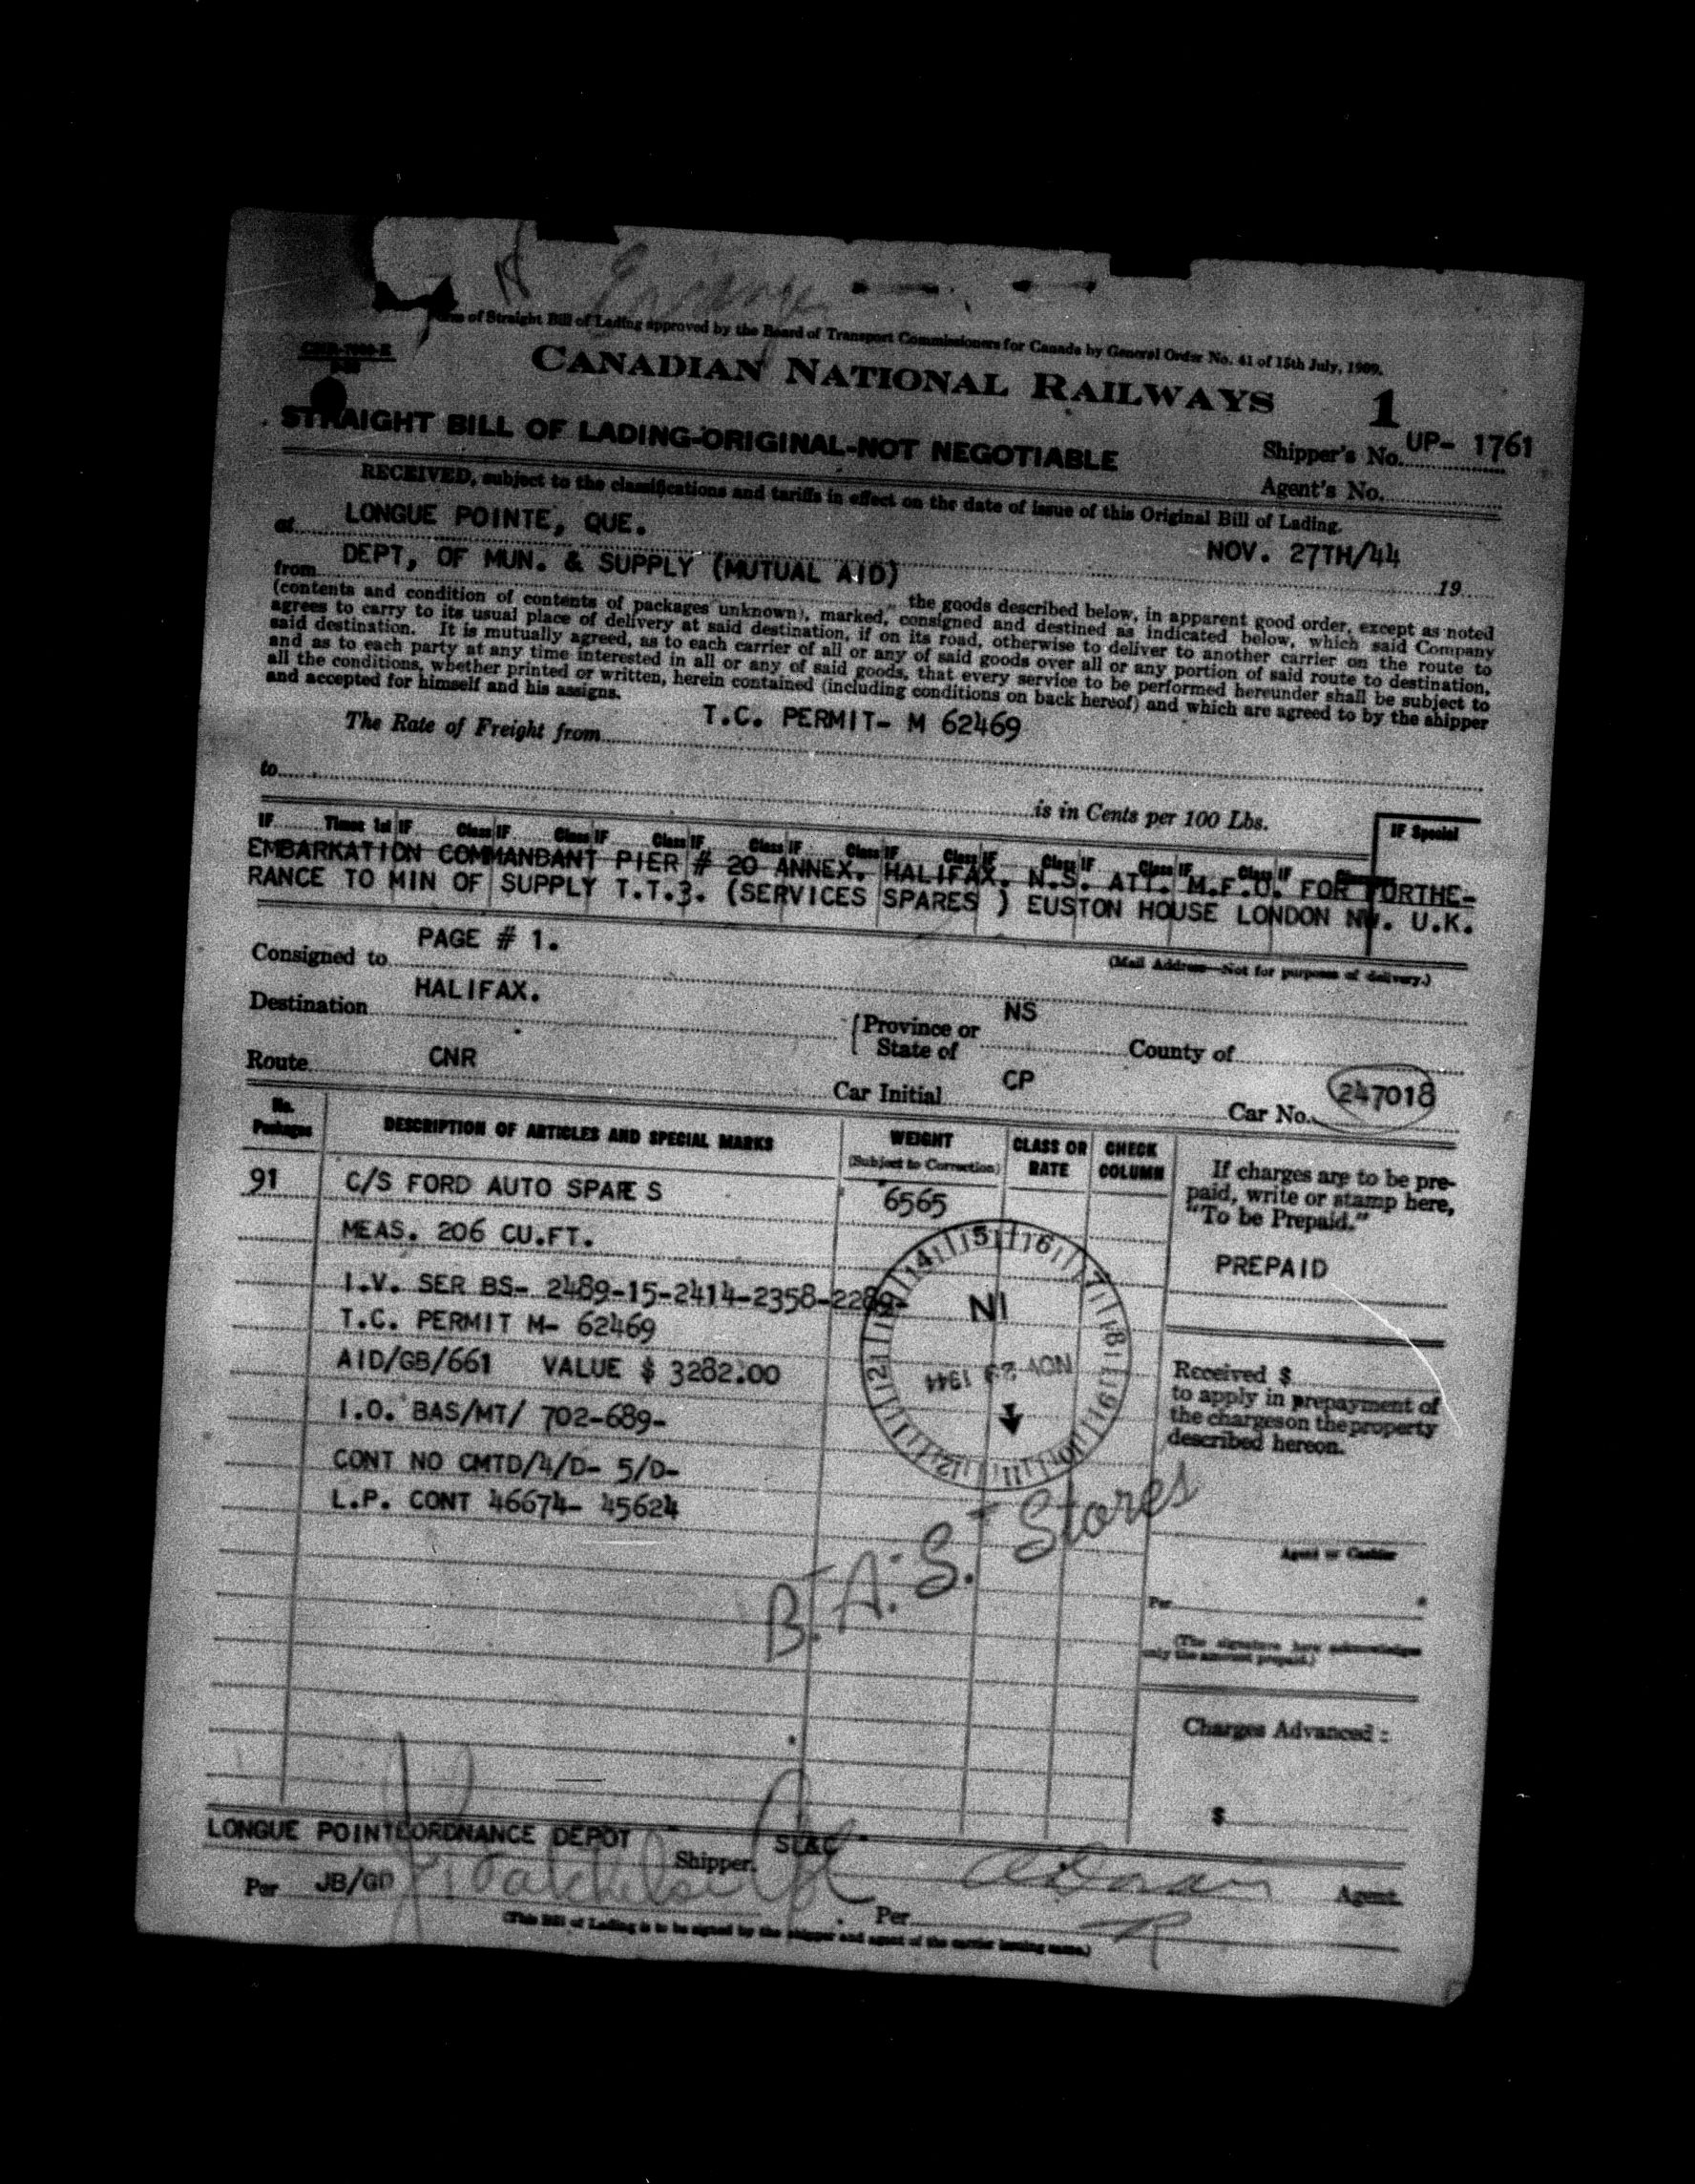 of Straight Bill of Lading approved by the Board of Transport Commissioners for Canada by General Order No. 41 of 15th July, 1909.
CANADIAN NATIONAL RAILWAYS 1
STRAIGHT BILL OF LADING-ORIGINAL-NOT NEGOTIABLE
Shipper's No. UP- 1761
Agent's No.
RECEIVED, subject to the classifications and tariffs in effect on the date of issue of this Original Bill of Lading,
at LONGUE POINTE, QUE. NOV. 27TH/44 19
from DEPT, OF MUN. & SUPPLY (MUTUAL AID)
the goods described below, in apparent good order, except as noted
(contents and condition of contents of packages unknown), marked, consigned and destined as indicated below, which said Company
agrees to carry to its usual place of delivery at said destination, if on its road, otherwise to deliver to another carrier on the route to
said destination. It is mutually agreed, as to each carrier of all or any of said goods over all or any portion of said route to destination,
and as to each party at any time interested in all or any of said goods, that every service to be performed hereunder shall be subject to
all the conditions, whether printed or written, herein contained (including conditions on back hereof) and which are agreed to by the shipper
and accepted for himself and his assigns.
The Rate of Freight from T.C. PERMIT- M 62469
to
is in Cents per 100 Lbs.
IF Times 1st IF Class IF Class IF Class IF Class IF Class IF Class IF Class IF Class IF Class IF Special
EMBARKATION COMMANDANT PIER # 20 ANNEX. HALIFAX. N.S. ATT. M.F.O. FOR FURTHE-
RANCE TO MIN OF SUPPLY T.T.3. (SERVICES SPARES ) EUSTON HOUSE LONDON NW. U.K.
Consigned to PAGE # 1.
(Mail Address—Not for purposes of delivery.)
Destination HALIFAX. Province or State of NS County of
Route CNR Car Initial CP Car No. 247018
No. Packages DESCRIPTION OF ARTICLES AND SPECIAL MARKS WEIGHT (Subject to Correction) CLASS OR RATE CHECK COLUMN
91 C/S FORD AUTO SPARE S 6565
MEAS. 206 CU.FT.
I.V. SER BS- 2489-15-2414-2358-2289-
T.C. PERMIT M- 62469
AID/GB/661 VALUE $ 3282.00
I.O. BAS/MT/ 702-689-
CONT NO CMTD/4/D- 5/D-
L.P. CONT 46674- 45624
If charges are to be pre-
paid, write or stamp here,
"To be Prepaid."
PREPAID
Received $
to apply in prepayment of
the charges on the property
described hereon.
Agent or Cashier
Per
(The signature here acknowledges
only the amount prepaid.)
Charges Advanced :
$
NI
NOV 29 1944
B.A.S. Stores
LONGUE POINTE ORDNANCE DEPOT Shipper. St&C Agent.
Per JB/GD Per
(This Bill of Lading is to be signed by the shipper and agent of the carrier issuing same.)